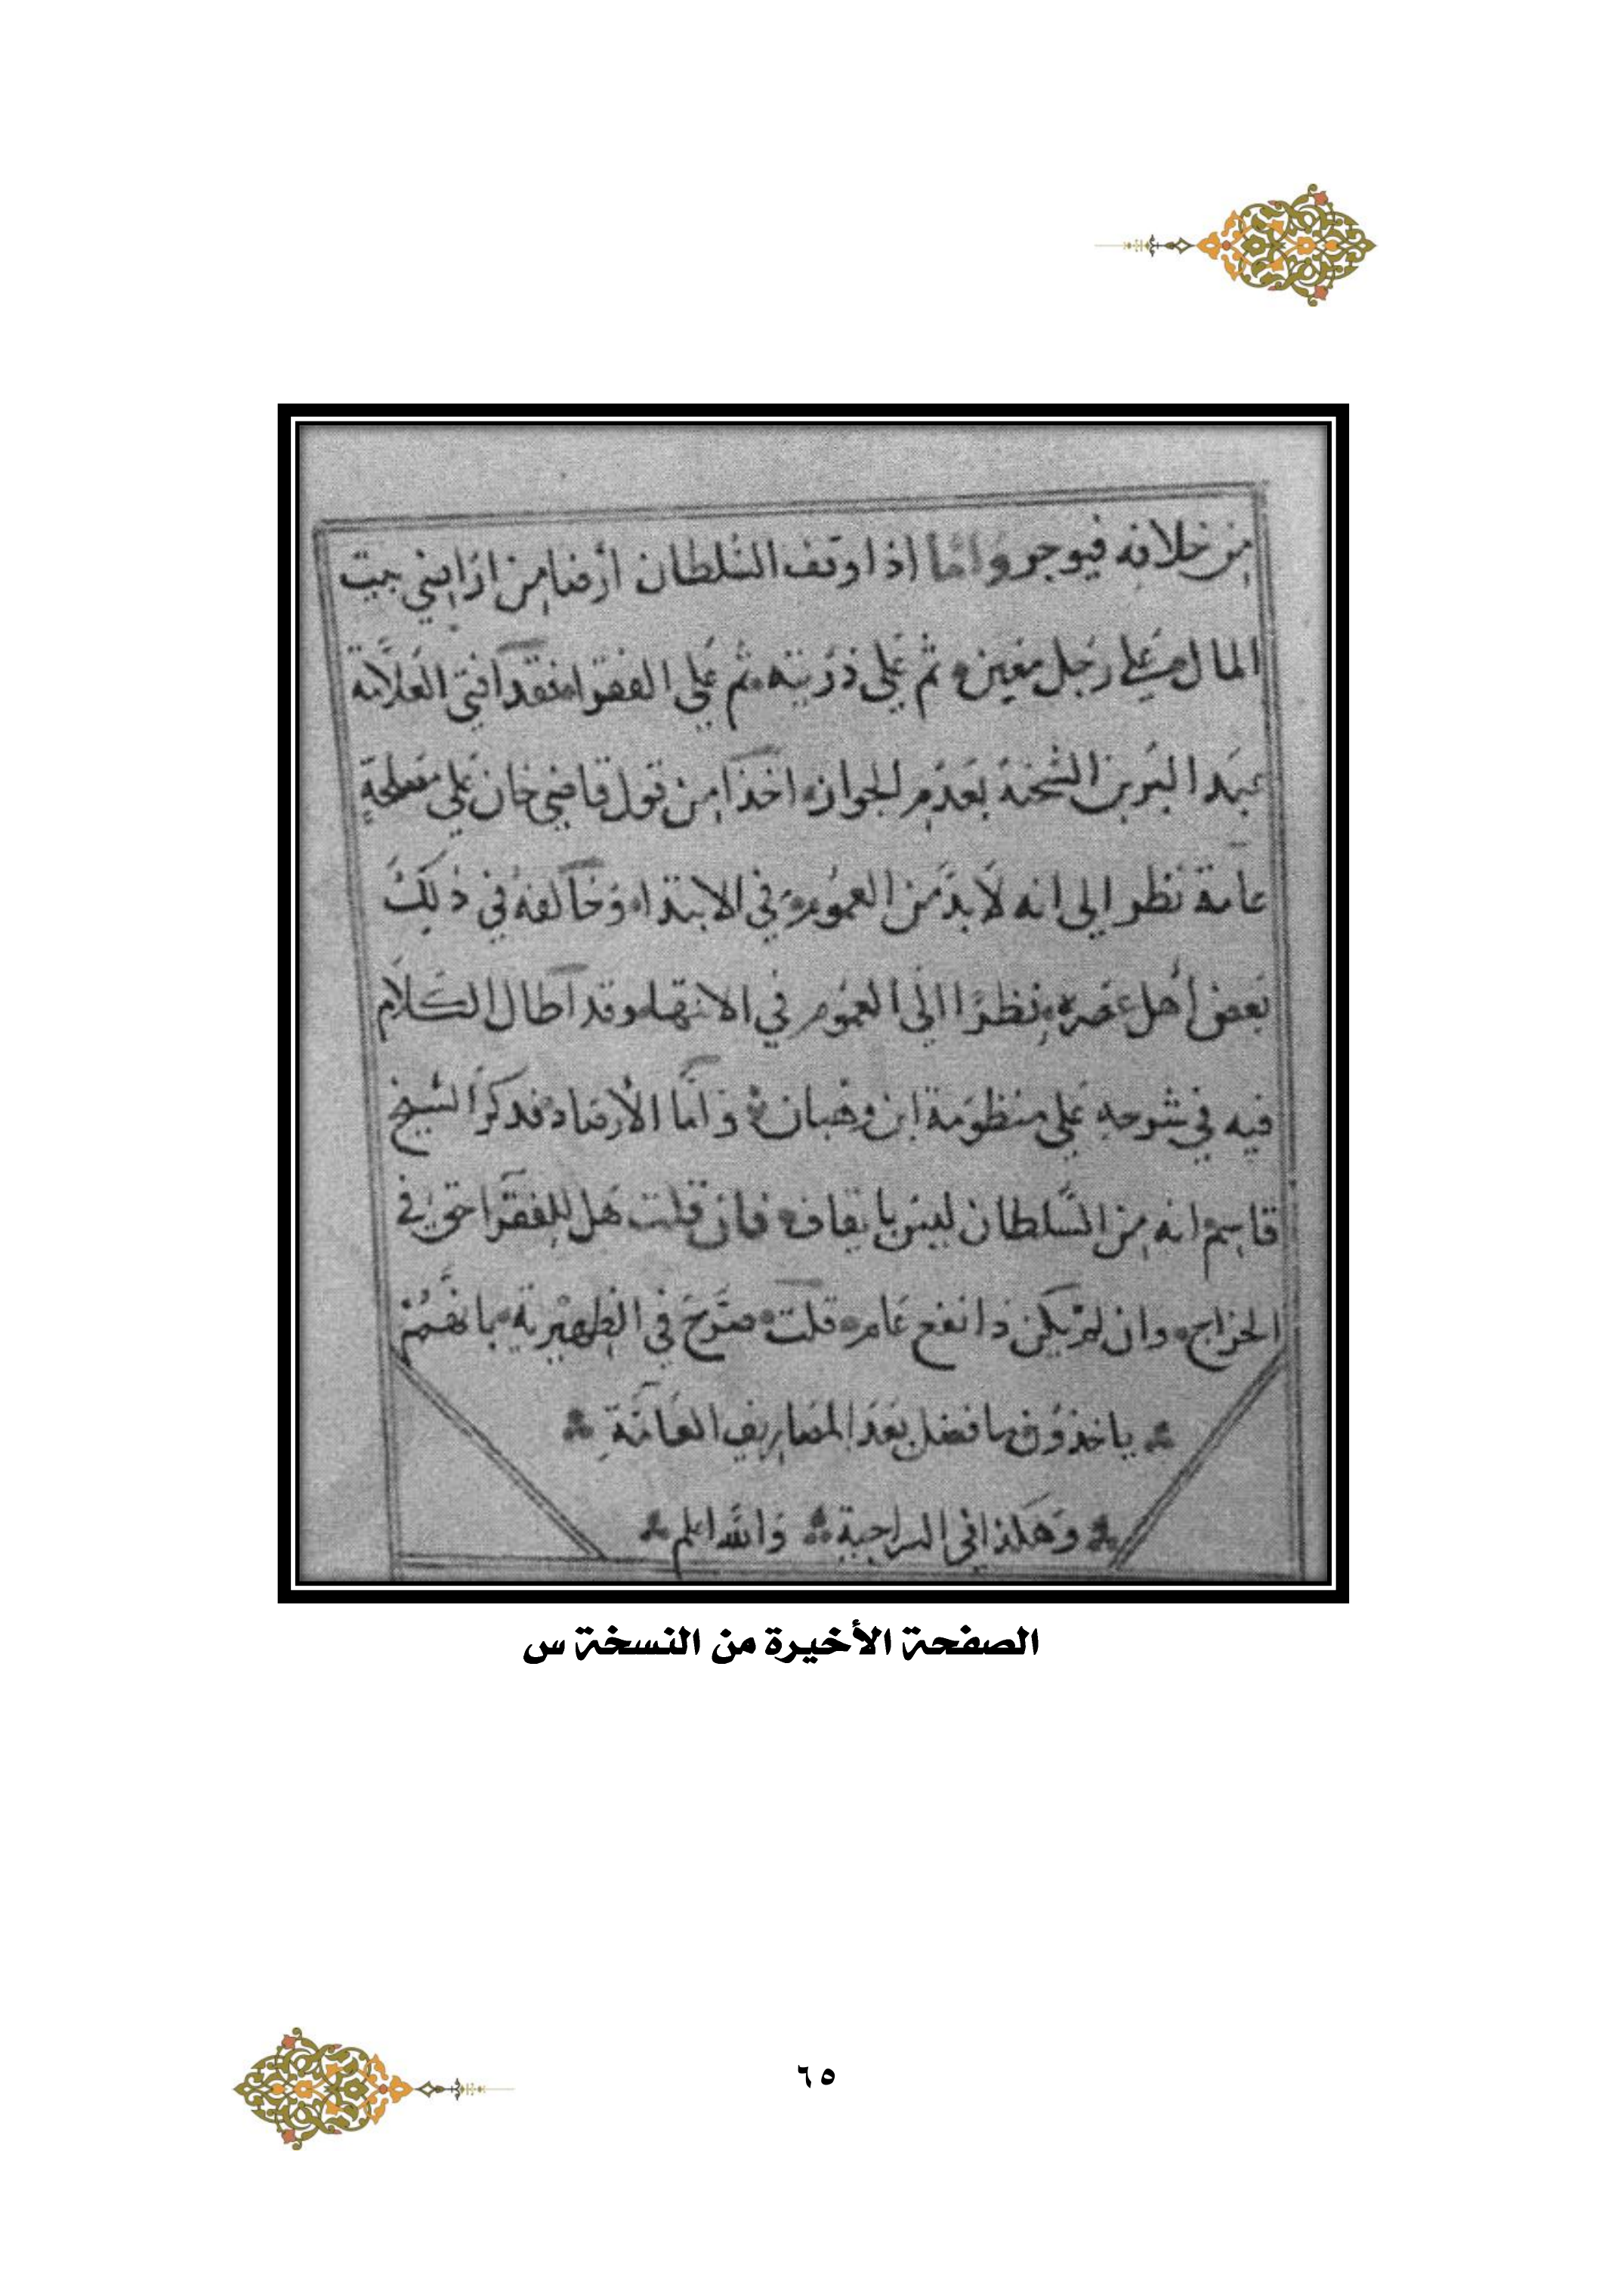 من خلافه فيوجر واما اذا وقف السلطان أرضا من اراضي بيت
المال على رجل معين ثم على ذريته ثم على الفقرا فقد أفتى العلامة
عبد البر بن الشحنة بعدم الجواز اخذا من قول قاضي خان على مصلحة
عامة نظر الى انه لا بد من العموم في الابتدا وخالفه في ذلك
بعض أهل عصره نظرا الى العموم في الانتها وقد أطال الكلام
فيه في شرحه على منظومة ابن وهبان وأما الأرصاد فذكر الشيخ
قاسم انه من السلطان ليس بايقاف فان قلت هل للفقرا حق في
الخراج وان لم يكن ذا نفع عام قلت صرح في الظهيرية بانهم
ياخذون ما فضل بعد المصاريف العامة
وهكذا في السراجية والله اعلم
الصفحة الأخيرة من النسخة س
٦٥